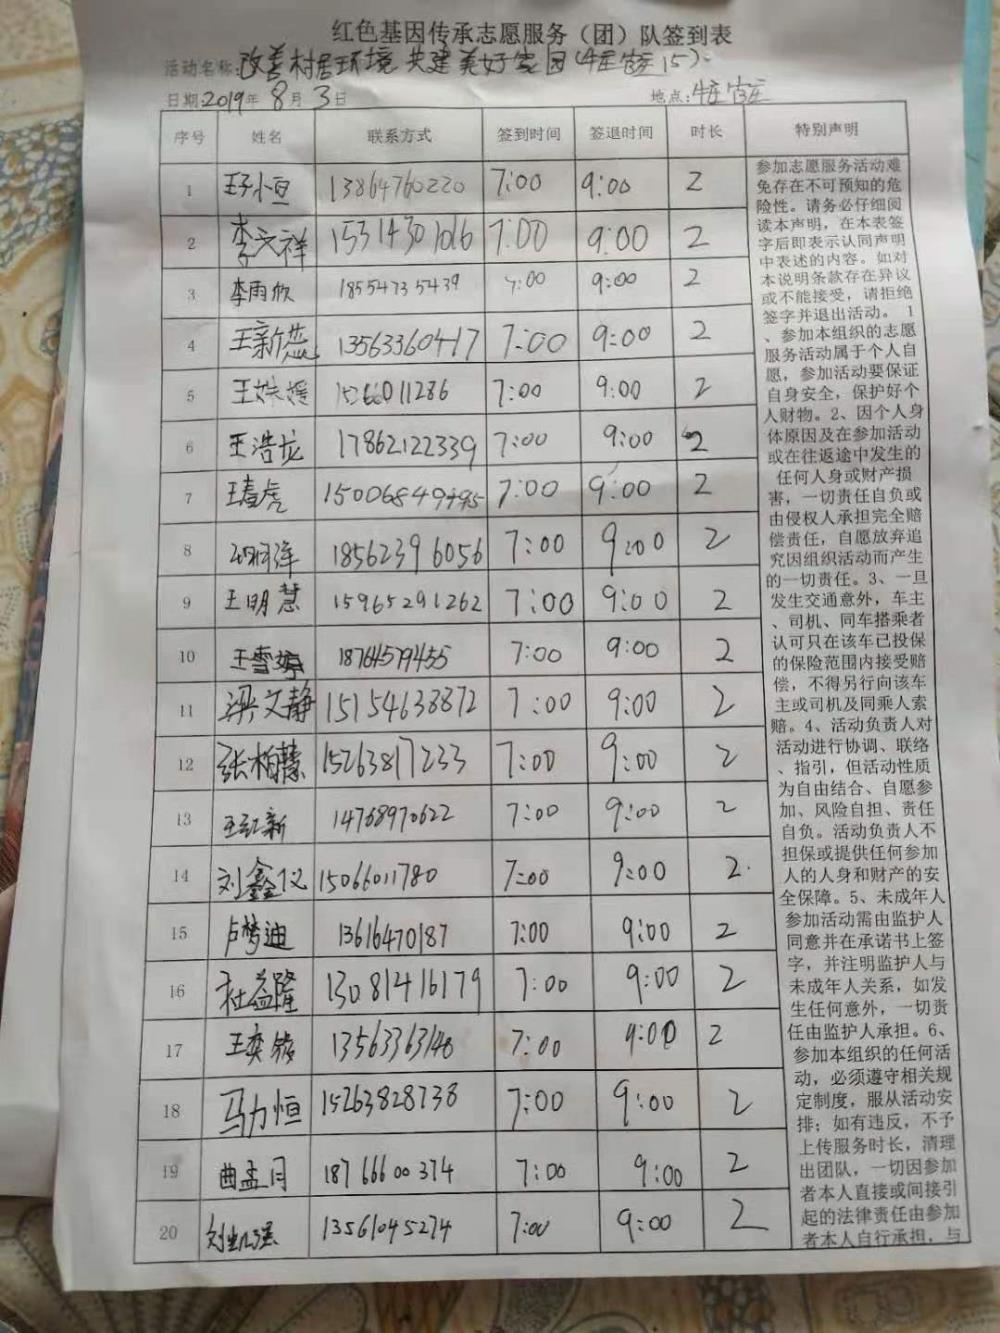 红色基因传承志愿服务（团）队签到表
活动名称:改善村居环境 共建美好家园(牛庄窑庄15)
日期:2019年8月3日 地点:牛庄窑庄
序号 姓名 联系方式 签到时间 签退时间 时长 特别声明
1 王子小恒 13864760220 7:00 9:00 2
2 李文祥 15314301016 7:00 9:00 2
3 李雨欣 18554735439 7:00 9:00 2
4 王新蕊 13563360417 7:00 9:00 2
5 15266011286 7:00 9:00 2
6 王浩龙 17862122339 7:00 9:00 2
7 王春虎 15006849495 7:00 9:00 2
8 18562396056 7:00 9:00 2
9 王明慧 15965291262 7:00 9:00 2
10 王雪婷 18764579455 7:00 9:00 2
11 梁文静 15154638872 7:00 9:00 2
12 张柏慧 15263817233 7:00 9:00 2
13 王红新 14768970622 7:00 9:00 2
14 刘鑫仪 15066011780 7:00 9:00 2
15 卢梦迪 13616470187 7:00 9:00 2
16 杜益隆 13081416179 7:00 9:00 2
17 13563363148 7:00 9:00 2
18 马力恒 15263828738 7:00 9:00 2
19 曲孟月 18766600374 7:00 9:00 2
20 刘凯强 13561045274 7:00 9:00 2
参加志愿服务活动难
免存在不可预知的危
险性。请务必仔细阅
读本声明，在本表签
字后即表示认同声明
中表述的内容。如对
本说明条款存在异议
或不能接受，请拒绝
签字并退出活动。 1
、参加本组织的志愿
服务活动属于个人自
愿，参加活动要保证
自身安全，保护好个
人财物。2、因个人身
体原因及在参加活动
或在往返途中发生的
任何人身或财产损
害，一切责任自负或
由侵权人承担完全赔
偿责任，自愿放弃追
究因组织活动而产生
的一切责任。3、一旦
发生交通意外，车主
、司机、同车搭乘者
认可只在该车已投保
的保险范围内接受赔
偿，不得另行向该车
主或司机及同乘人索
赔。4、活动负责人对
活动进行协调、联络
、指引，但活动性质
为自由结合、自愿参
加、风险自担、责任
自负。活动负责人不
担保或提供任何参加
人的人身和财产的安
全保障。5、未成年人
参加活动需由监护人
同意并在承诺书上签
字，并注明监护人与
未成年人关系，如发
生任何意外，一切责
任由监护人承担。6、
参加本组织的任何活
动，必须遵守相关规
定制度，服从活动安
排；如有违反，不予
上传服务时长，清理
出团队，一切因参加
者本人直接或间接引
起的法律责任由参加
者本人自行承担，与